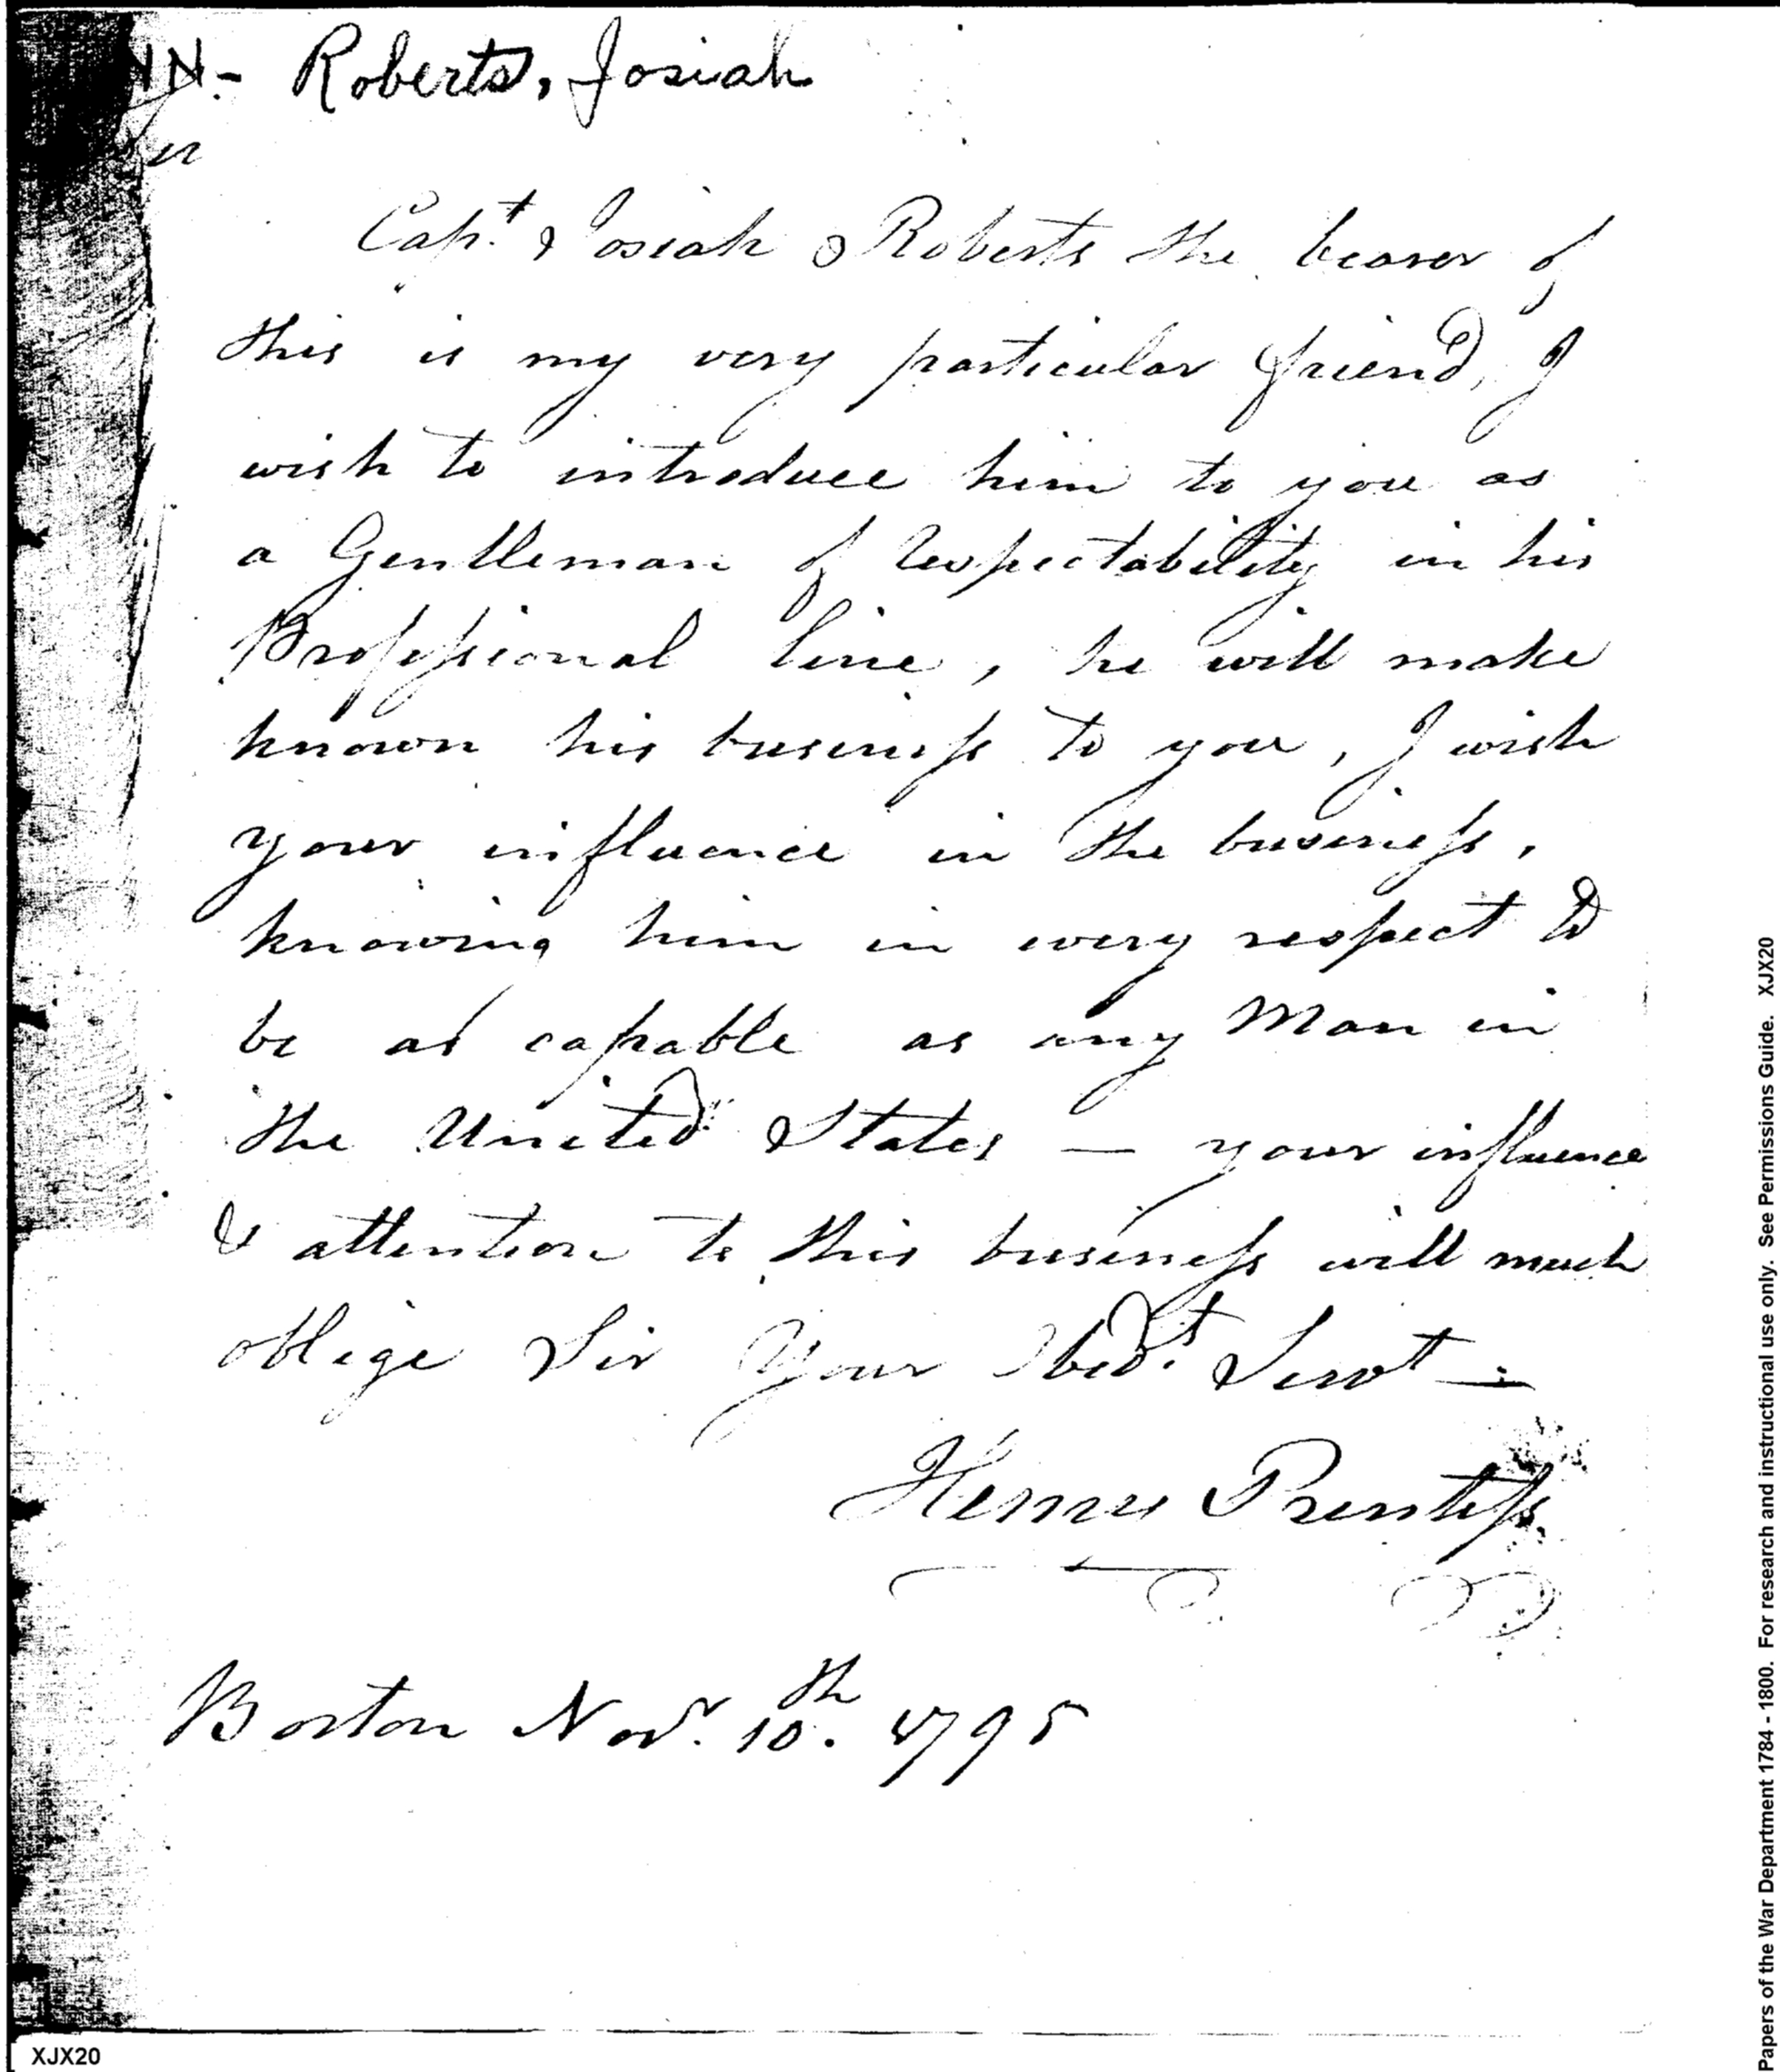 N.- Roberts, Josiah
Capt. Josiah Roberts the bearer of
this is my very particular friend, I
wish to introduce him to you as
a Gentleman of respectability in his
Professional line, he will make
known his business to you, I wish
your influence in the business,
knowing him in every respect to
be as capable as any Man in
the United States — your influence
& attention to this business will much
oblige Sir Your Obedt. Servt —
Henry Prentiss.
Boston Novr. 10th. 1795
XJX20
Papers of the War Department 1784 - 1800. For research and instructional use only. See Permissions Guide. XJX20